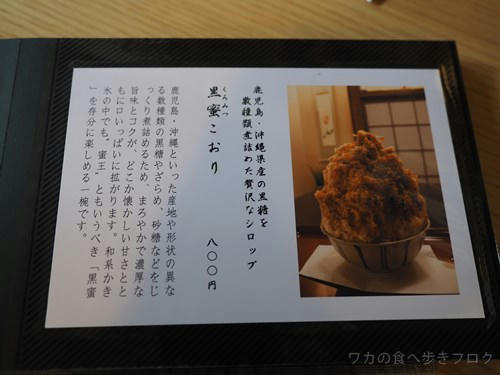 鹿児島・沖縄県産の黒糖を
数種類煮詰めた贅沢なシロップ
くろみつ
黒蜜こおり
八〇〇円
鹿児島・沖縄といった産地や形状の異な
る数種類の黒糖やざらめ、砂糖などをじ
っくり煮詰めるため、まろやかで濃厚な
旨味とコクが、どこか懐かしい甘さとと
もに口いっぱいに拡がります。和系かき
氷の中でも、“蜜王”ともいうべき「黒蜜
」を存分に楽しめる一椀です。
ワカの食べ歩きブログ